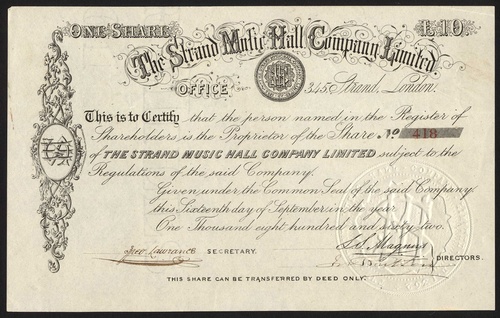 ONE SHARE £10.
The Strand Music Hall Company Limited.
OFFICE 345, Strand, London.
This is to Certify that the person named in the Register of
Shareholders, is the Proprietor of the Share No. 418
of THE STRAND MUSIC HALL COMPANY LIMITED subject to the
Regulations of the said Company.
Given under the Common Seal of the said Company
this Sixteenth day of September in the year
One Thousand eight hundred and sixty two.
Lawrance SECRETARY. S. Magnus
DIRECTORS.
THIS SHARE CAN BE TRANSFERRED BY DEED ONLY.